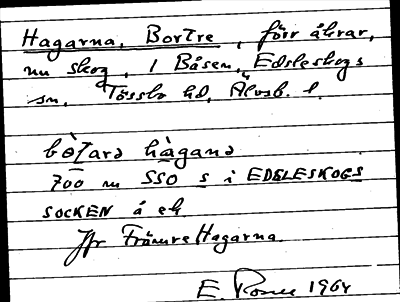 Hagarna, Bortre, förr åkrar,
nu skog, i Båsen, Edsleskogs
sn, Tössbo hd, Älvsb. l.
bo̱ʈarə hàganə
700 m SSO s i EDSLESKOGS
SOCKEN å ek
Jfr Främre Hagarna.
E. 1964